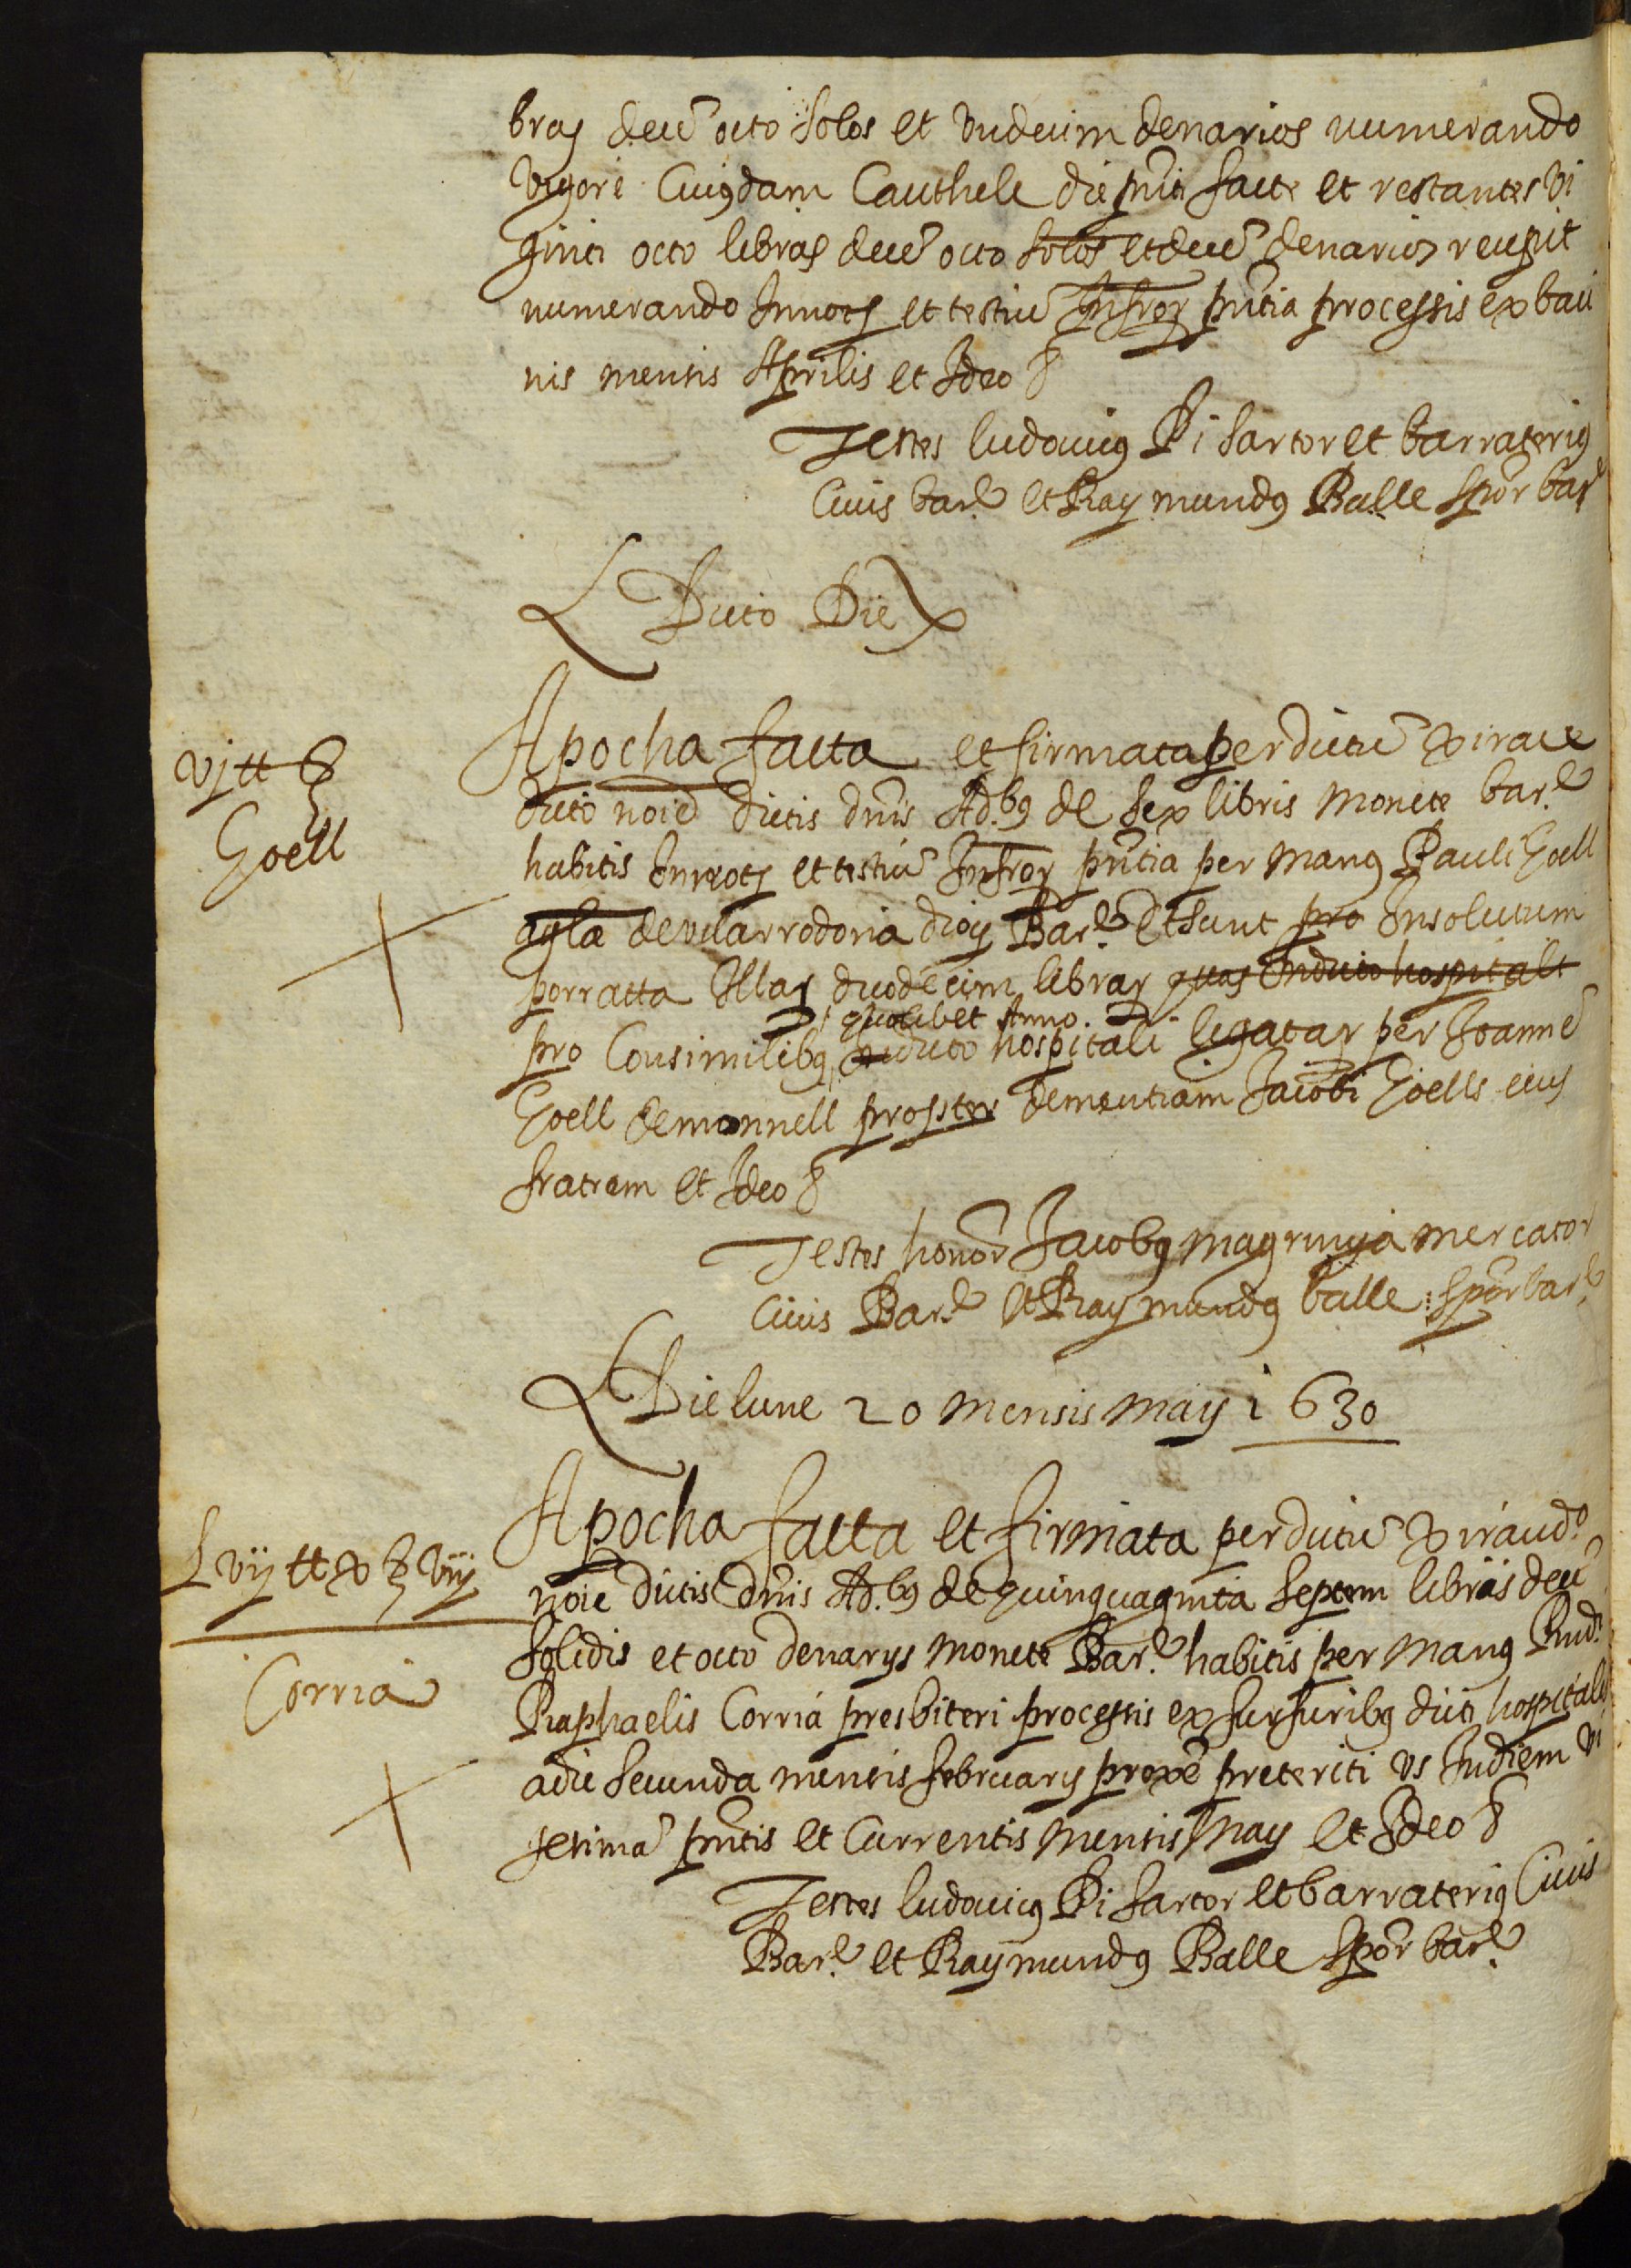 bras decẽ octo solos et undecim denarios numerando
vigore Cuiusdam Cauthele die pñti facte et restantes vi
ginti octo libras decẽ octo solos et decẽ denarios recepit
numerando In not et testiũ Infror pñtia processis ex baci
nis mensis Aprilis et Ideo &
Testes ludovicus Pi sartor et barraterius
Civis bar.e et Raymundus Balle spõr bar.e
Dicto Die
vj tt ẞ
Goell
Apocha facta et firmata per dictũ
dicto noie dictis dñis Ad.bus de sex libris Monete bar.e
habitis In not et testiũ Infror pñtia per Manus Pauli Goell
aglæ de vilarrodona dios Bar.e Et sunt pro Insolutum
porratta Illar duodecim librar quas In dicto hospitali
quolibet Anno
pro Consimilibus dicto hospitali legatar per Joannẽ
Goell de monnell propter dementiam Jacobi Goells eius
fratram et Ideo &
Testes honor Jacobus magrinya mercator
Civis Bar.e et Raymundus balle spõr bar.e
Die lune 20 mensis maij 1630
Lvij tt x ẞ viij
Corria
Apocha facta et firmata per dictũ
noie dictis dñis Ad.bus de quinquaginta septem libris decẽ
solidis et octo denarys monete Bar.e habitis per manus Rnd.i
Raphaelis Corria presbiteri processis ex furfuribus dicti hospitalis
a die secunda mensis februarij proxẽ preteriti us In diem vi
gesimã pñtis et Currentis mensis Maij et Ideo &
Testes ludovicus Pi sartor et barraterius Civis
Bar.e et Raymundus Balle spõr bar.e